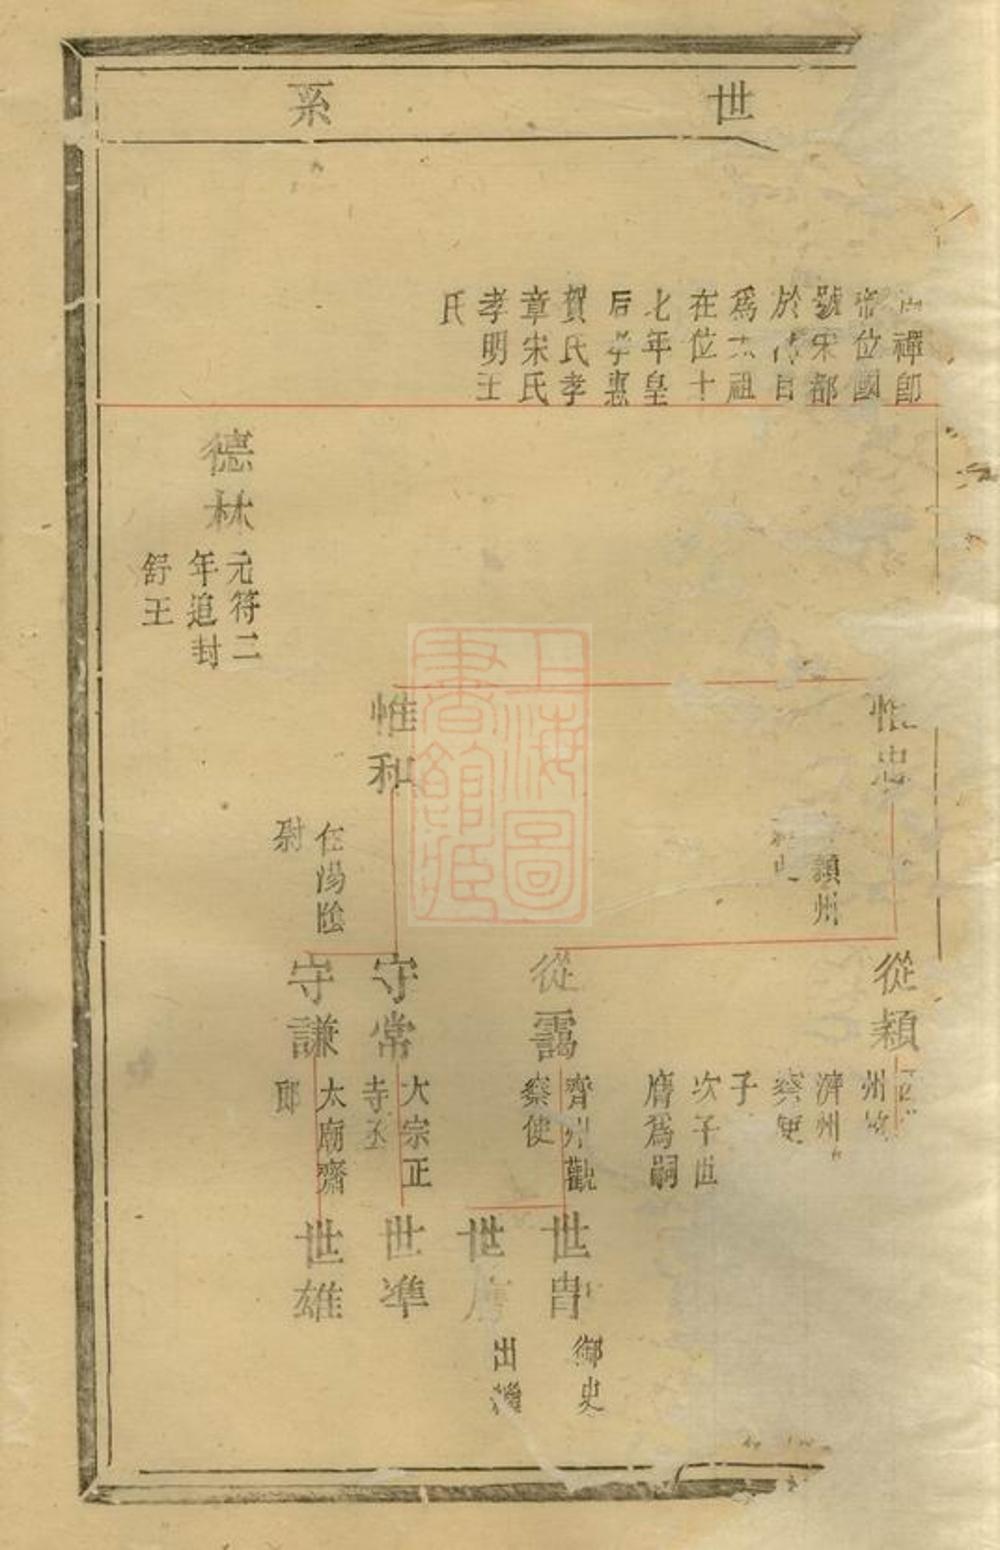 世系
禪卽
帝位國
號宋都
於
爲太祖
在位十
七年皇
后孝惠
賀氏孝
章宋氏
孝明王
氏
德林
元符二
年追封
舒王
惟忠
潁州
惟和
任湯陰
尉
從穎
州
濟州
察使
子
次子世
膺爲嗣
從靄
齊州觀
察使
守常
大宗正
寺丞
守謙
太廟齋
郎
世冑
御史
世膺
出繼
世準
世雄
上海圖書館藏